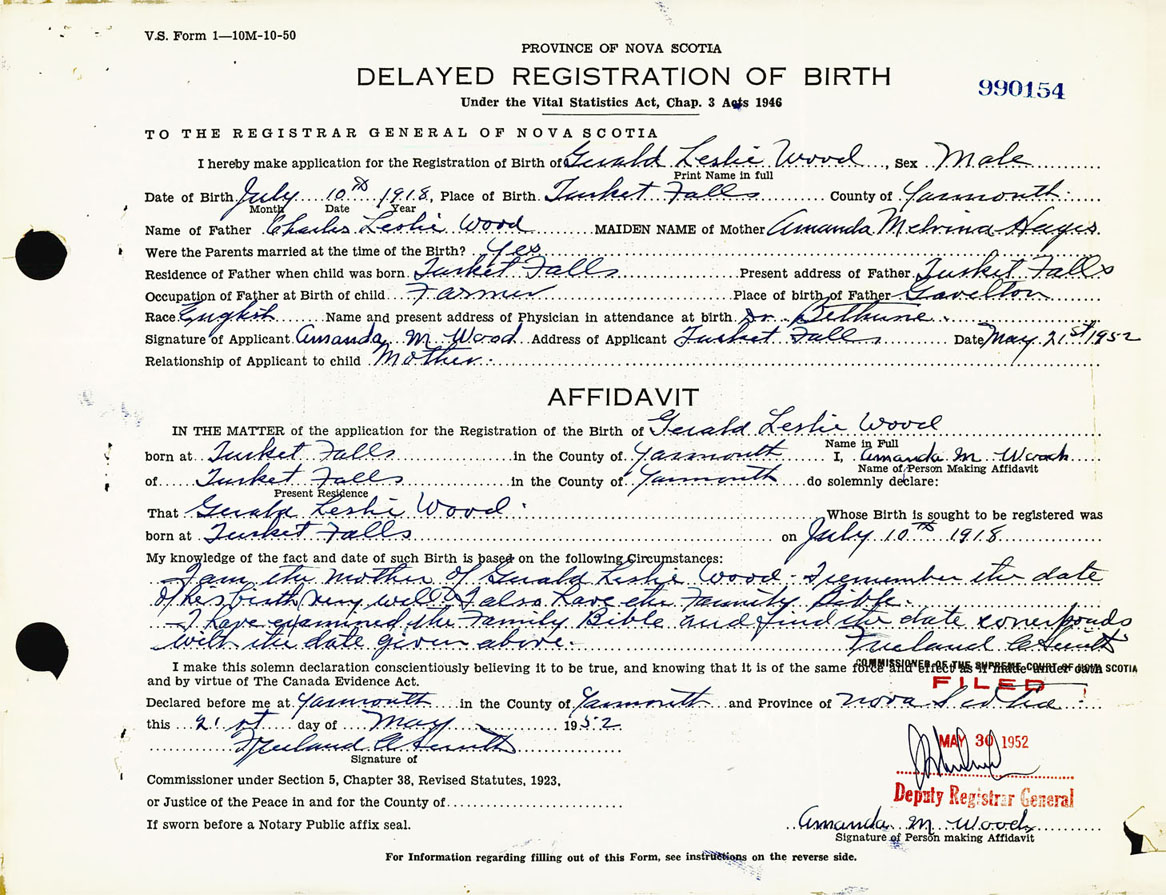 V.S. Form 1—10M-10-50
PROVINCE OF NOVA SCOTIA
DELAYED REGISTRATION OF BIRTH
990154
Under the Vital Statistics Act, Chap. 3 Acts 1946
TO THE REGISTRAR GENERAL OF NOVA SCOTIA
I hereby make application for the Registration of Birth of Gerald Leslie Wood, Sex Male
Print Name in full
Date of Birth July 10th 1918, Place of Birth Tusket Falls County of Yarmouth.
Month Date Year
Name of Father Charles Leslie Wood MAIDEN NAME of Mother Amanda Melvina Hayes.
Were the Parents married at the time of the Birth? Yes
Residence of Father when child was born Tusket Falls Present address of Father Tusket Falls
Occupation of Father at Birth of child Farmer Place of birth of Father Gavelton
Race English Name and present address of Physician in attendance at birth Dr. Bethune.
Signature of Applicant Amanda M Wood Address of Applicant Tusket Falls Date May 21st 1952
Relationship of Applicant to child Mother.
AFFIDAVIT
IN THE MATTER of the application for the Registration of the Birth of Gerald Leslie Wood
Name in Full
born at Tusket Falls in the County of Yarmouth I, Amanda M Wood
Name of Person Making Affidavit
of Tusket Falls in the County of Yarmouth do solemnly declare:
Present Residence
That Gerald Leslie Wood. Whose Birth is sought to be registered was
born at Tusket Falls on July 10th 1918
My knowledge of the fact and date of such Birth is based on the following Circumstances:
I am the mother of Gerald Leslie Wood - I remember the date
of his birth very well & I also have the Family Bible.
I have examined the Family Bible and find the date corresponds
with the date given above. Freeland
COMMISSIONER OF THE SUPREME COURT OF NOVA SCOTIA
I make this solemn declaration conscientiously believing it to be true, and knowing that it is of the same force and effect as if made under oath
and by virtue of The Canada Evidence Act.
FILED
Declared before me at Yarmouth in the County of Yarmouth and Province of Nova Scotia
this 21st day of May 1952
MAY 30 1952
Freeland
Signature of
Commissioner under Section 5, Chapter 38, Revised Statutes, 1923,
Deputy Registrar General
or Justice of the Peace in and for the County of
If sworn before a Notary Public affix seal.
Amanda M Wood
Signature of Person making Affidavit
For Information regarding filling out of this Form, see instructions on the reverse side.